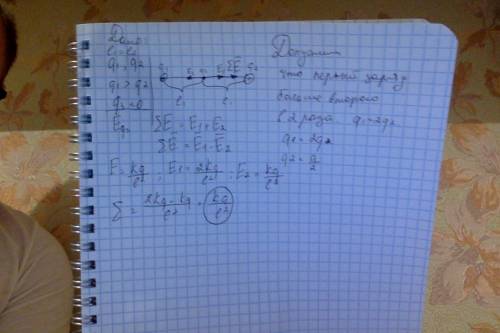 Дано:
l₁=l₂
q₁ > q₂
q₁ > q₂
q₂ = 0
E
q₁ E₂ E₁ ΣE q₂
l₁ l
ΣE = E₁ + E₂
ΣE = E₁ - E₂
E = kq/l² ; E₁ = 2kq/l² ; E₂ = kq/l²
Σ = 2kq - kq / l² = kq/l²
Допустим
что первый заряд
больше второго
в 2 раза q₁=2q₂
q₁ = 2q₂
q₂ = q/2